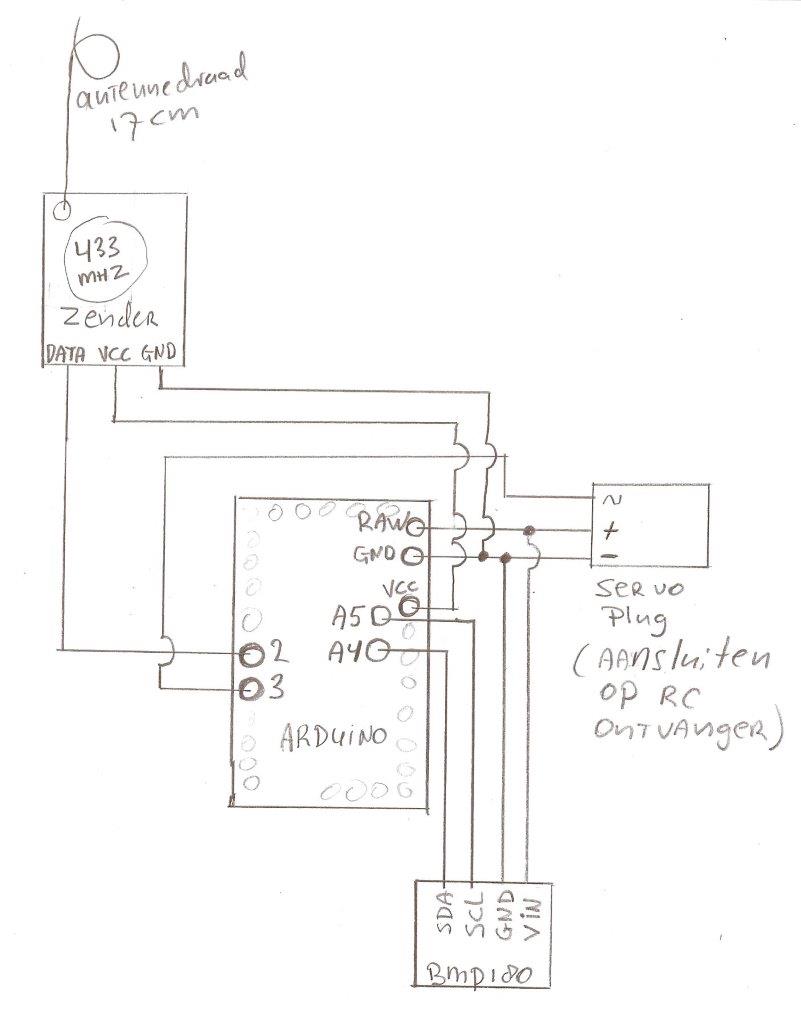 antennedraad
17cm
433
MHZ
Zender
DATA VCC GND
RAW
GND
VCC
A5
A4
2
3
ARDUiNO
~
+
-
SERVO
Plug
(AANSluiten
OP RC
ONTVANGER)
SDA
SCL
GND
ViN
Bmp180